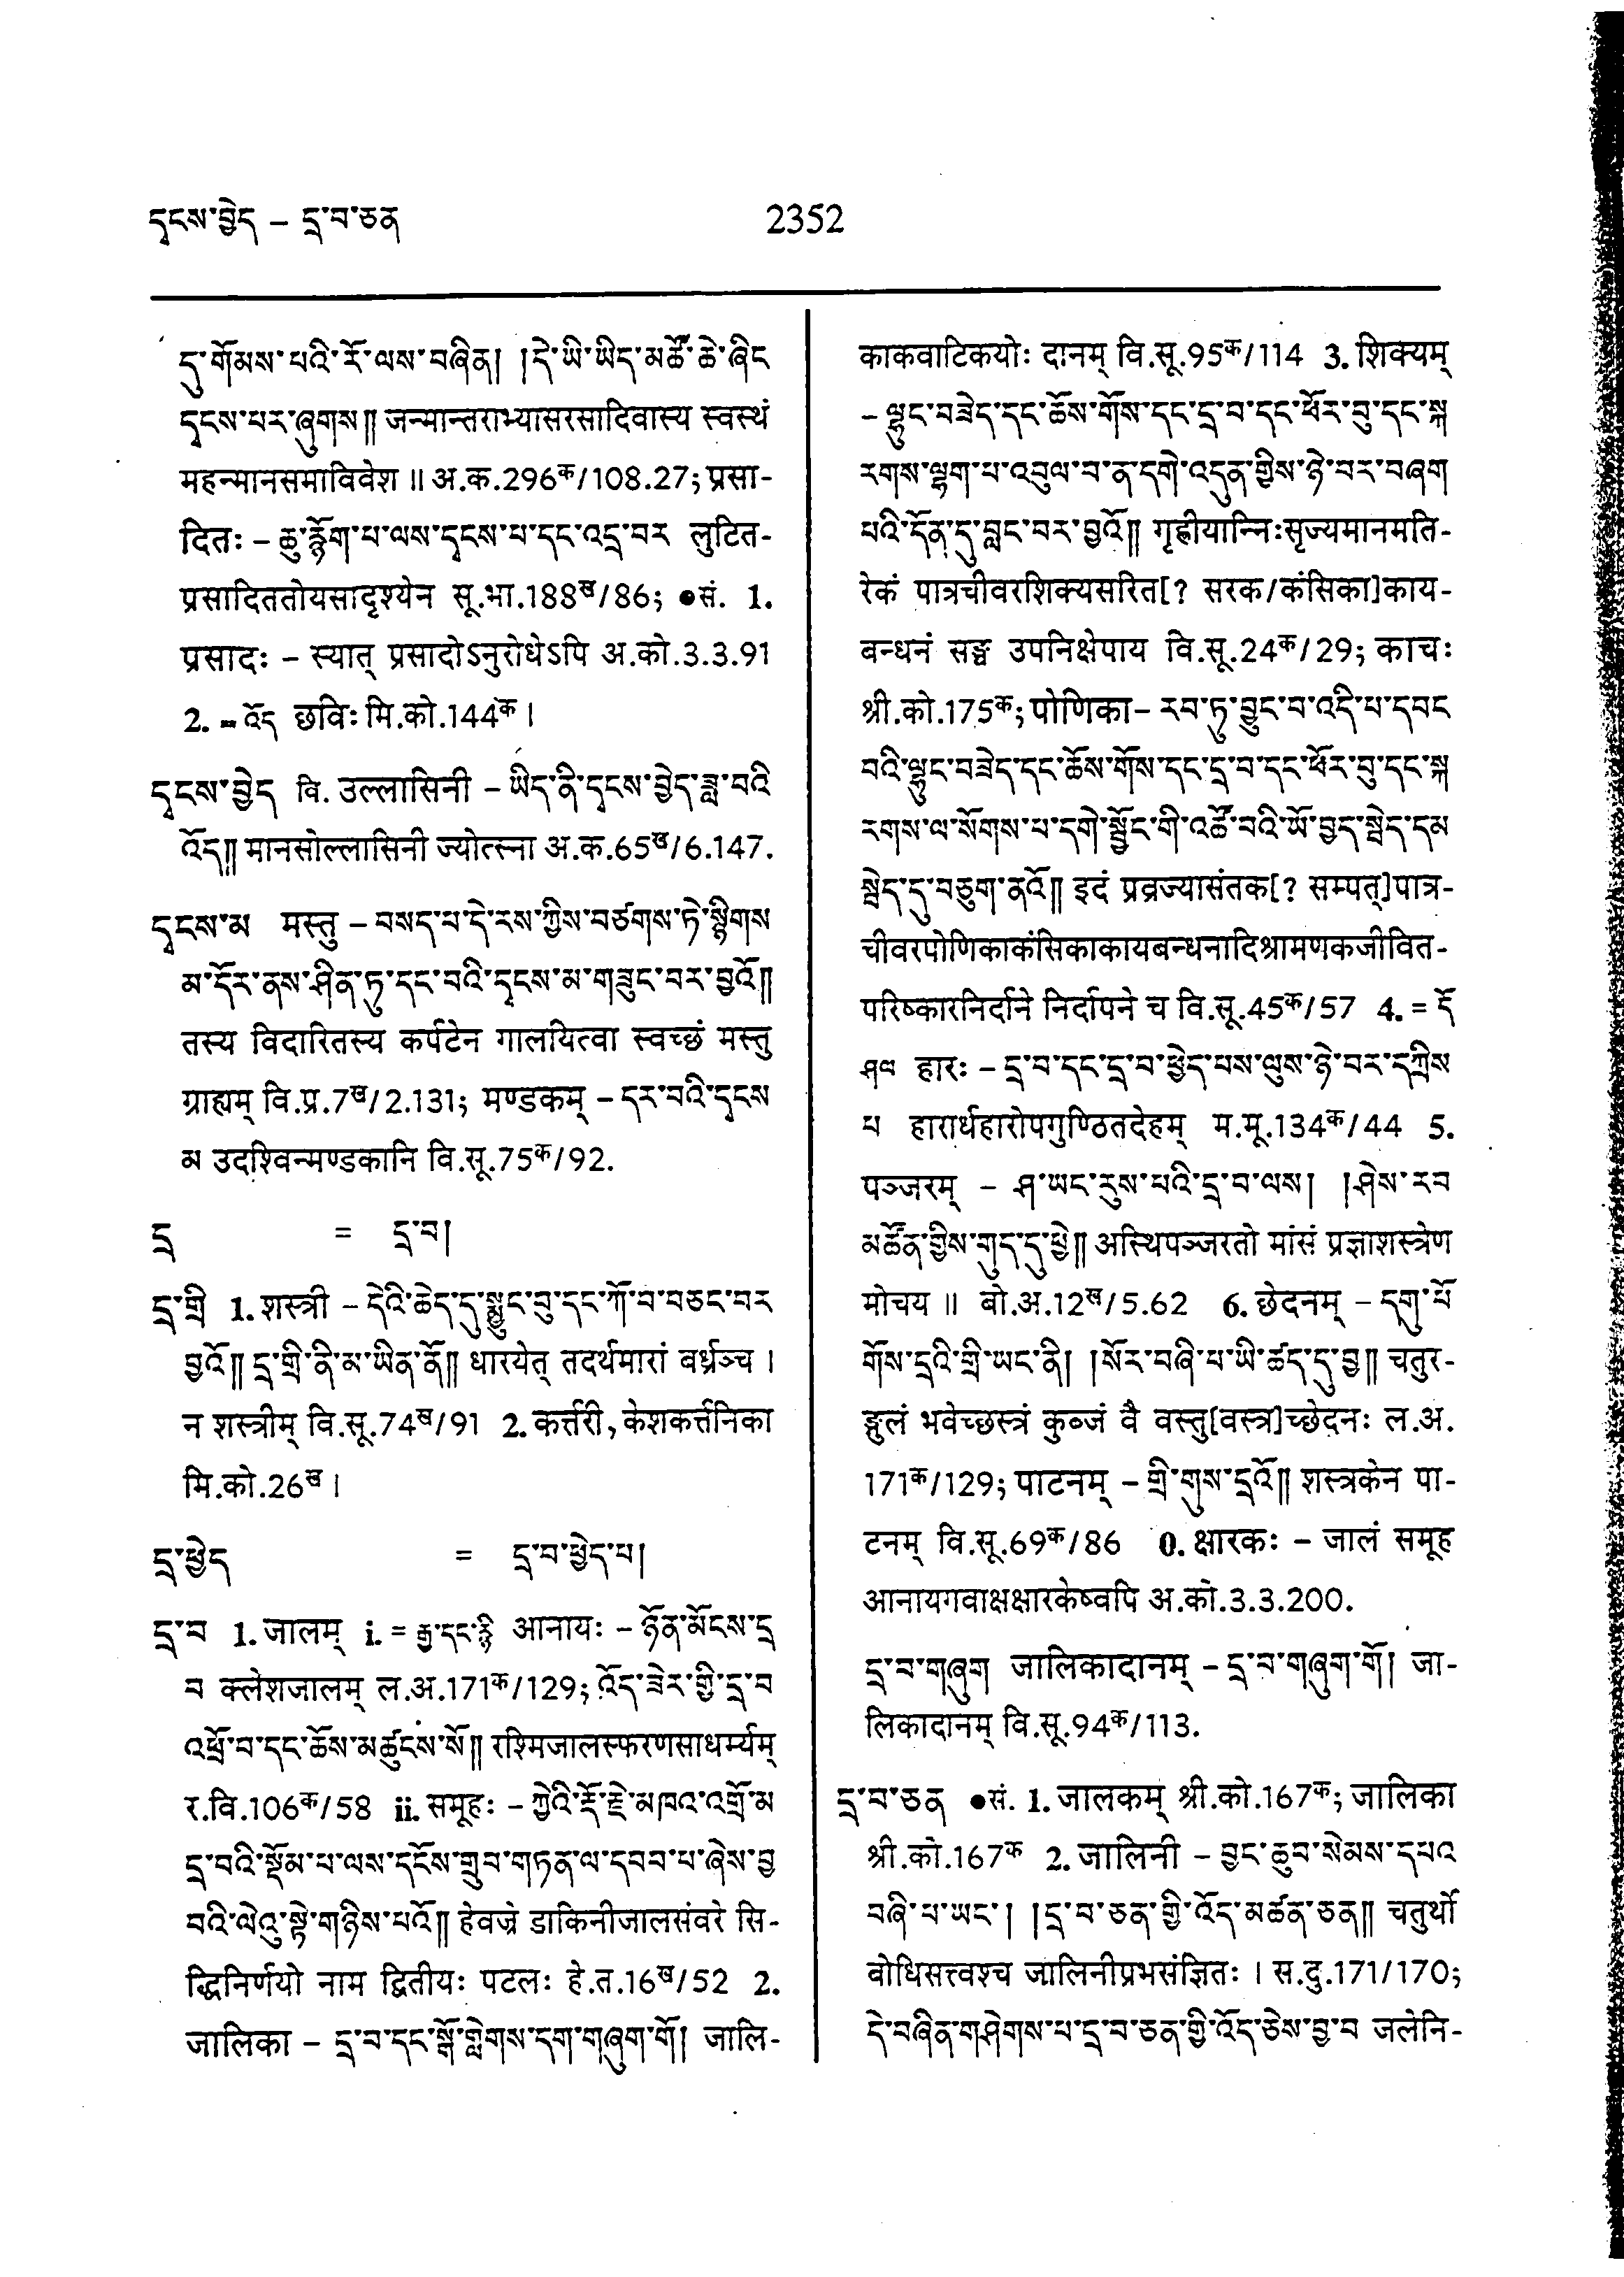 དྭངས་བྱེད – དྲ་བ་ཅན
2352
དུ་གོམས་པའི་རོ་ལས་བཞིན། །དེ་ཡི་ཡིད་མཚོ་ཆེ་ཞིང
དྭངས་པར་ཞུགས༎ जन्मान्तराभ्यासरसादिवास्य स्वस्थं
महन्मानसमाविवेश ॥ अ.क.296क/108.27; प्रसा-
दितः – ཆུ་རྙོག་པ་ལས་དྭངས་པ་དང་འདྲ་བར लुटित-
प्रसादिततोयसादृश्येन सू.भा.188ख/86; ●सं. 1.
प्रसादः – स्यात् प्रसादोऽनुरोधेऽपि अ.को.3.3.91
2. = འོད छविः मि.को.144क ।
དྭངས་བྱེད वि. उल्लासिनी – ཡིད་ནི་དྭངས་བྱེད་ཟླ་བའི
འོད༎ मानसोल्लासिनी ज्योत्स्ना अ.क.65ख/6.147.
དྭངས་མ मस्तु – བསད་པ་དེ་རས་ཀྱིས་བཙགས་ཏེ་སྙིགས
མ་དོར་ནས་ཤིན་ཏུ་དང་བའི་དྭངས་མ་གཟུང་བར་བྱའོ༎
तस्य विदारितस्य कर्पटेन गालयित्वा स्वच्छं मस्तु
ग्राह्यम् वि.प्र.7ख/2.131; मण्डकम् – དར་བའི་དྭངས
མ उदश्विन्मण्डकानि वि.सू.75क/92.
དྲ = དྲ་བ།
དྲ་གྲི 1. शस्त्री – དེའི་ཆེད་དུ་སྨྱུང་བུ་དང་ཀོ་བ་བཅང་བར
བྱའོ༎ དྲ་གྲི་ནི་མ་ཡིན་ནོ༎ धारयेत् तदर्थमारां वर्ध्रञ्च ।
न शस्त्रीम् वि.सू.74ख/91 2. कर्त्तरी, केशकर्त्तनिका
मि.को.26ख ।
དྲ་ཕྱེད = དྲ་བ་ཕྱེད་པ།
དྲ་བ 1. जालम् i. = རྒྱ་དང་རྙི आनायः – ཉོན་མོངས་དྲ
བ क्लेशजालम् ल.अ.171क/129; འོད་ཟེར་གྱི་དྲ་བ
འཕྲོ་བ་དང་ཆོས་མཚུངས་སོ༎ रश्मिजालस्फरणसाधर्म्यम्
र.वि.106क/58 ii. समूहः – ཀྱེའི་རྡོ་རྗེ་མཁའ་འགྲོ་མ
དྲ་བའི་སྡོམ་པ་ལས་དངོས་གྲུབ་གཏན་ལ་དབབ་པ་ཞེས་བྱ
བའི་ལེའུ་སྟེ་གཉིས་པའོ༎ हेवज्रे डाकिनीजालसंवरे सि-
द्धिनिर्णयो नाम द्वितीयः पटलः हे.त.16ख/52 2.
जालिका – དྲ་བ་དང་སྒོ་གླེགས་དག་གཞུག་གོ། जालि-
काकवाटिकयोः दानम् वि.सू.95क/114 3. शिक्यम्
– ལྷུང་བཟེད་དང་ཆོས་གོས་དང་དྲ་བ་དང་ཕོར་བུ་དང་སྐ
རགས་ལྷག་པ་འབུལ་བ་ན་དགེ་འདུན་གྱིས་ཉེ་བར་བཞག
པའི་དོན་དུ་བླང་བར་བྱའོ༎ गृह्णीयान्निःसृज्यमानमति-
रेकं पात्रचीवरशिक्यसरित[? सरक/कंसिका]काय-
बन्धनं सङ्घ उपनिक्षेपाय वि.सू.24क/29; काचः
श्री.को.175क; पोणिका – རབ་ཏུ་བྱུང་བ་འདི་པ་དབང
བའི་ལྷུང་བཟེད་དང་ཆོས་གོས་དང་དྲ་བ་དང་ཕོར་བུ་དང་སྐ
རགས་ལ་སོགས་པ་དགེ་སྦྱོང་གི་འཚོ་བའི་ཡོ་བྱད་སྦེད་དམ
སྦེད་དུ་བཅུག་ནའོ༎ इदं प्रव्रज्यासंतक[? सम्पत्]पात्र-
चीवरपोणिकाकंसिकाकायबन्धनादिश्रामणकजीवित-
परिष्कारनिर्दाने निर्दापने च वि.सू.45क/57 4. = དོ
ཤལ हारः – དྲ་བ་དང་དྲ་བ་ཕྱེད་པས་ལུས་ཉེ་བར་དཀྲིས
པ हारार्धहारोपगुण्ठितदेहम् म.मू.134क/44 5.
पञ्जरम् – ཤ་ཡང་རུས་པའི་དྲ་བ་ལས། །ཤེས་རབ
མཚོན་གྱིས་གུད་དུ་ཕྱེ༎ अस्थिपञ्जरतो मांसं प्रज्ञाशस्त्रेण
मोचय ॥ बो.अ.12ख/5.62 6. छेदनम् – དགུ་པོ
གོས་དྲའི་གྲི་ཡང་ནི། །སོར་བཞི་པ་ཡི་ཚད་དུ་བྱ༎ चतुर-
ङ्गुलं भवेच्छस्त्रं कुब्जं वै वस्तु[वस्त्र]च्छेदनः ल.अ.
171क/129; पाटनम् – གྲི་གུས་དྲའོ༎ शस्त्रकेन पा-
टनम् वि.सू.69क/86 0. क्षारकः – जालं समूह
आनायगवाक्षक्षारकेष्वपि अ.को.3.3.200.
དྲ་བ་གཞུག जालिकादानम् – དྲ་བ་གཞུག་གོ། जा-
लिकादानम् वि.सू.94क/113.
དྲ་བ་ཅན ●सं. 1. जालकम् श्री.को.167क; जालिका
श्री.को.167क 2. जालिनी – བྱང་ཆུབ་སེམས་དཔའ
བཞི་པ་ཡང་། །དྲ་བ་ཅན་གྱི་འོད་མཚན་ཅན༎ चतुर्थो
बोधिसत्त्वश्च जालिनीप्रभसंज्ञितः । स.दु.171/170;
དེ་བཞིན་གཤེགས་པ་དྲ་བ་ཅན་གྱི་འོད་ཅེས་བྱ་བ जलेनि-